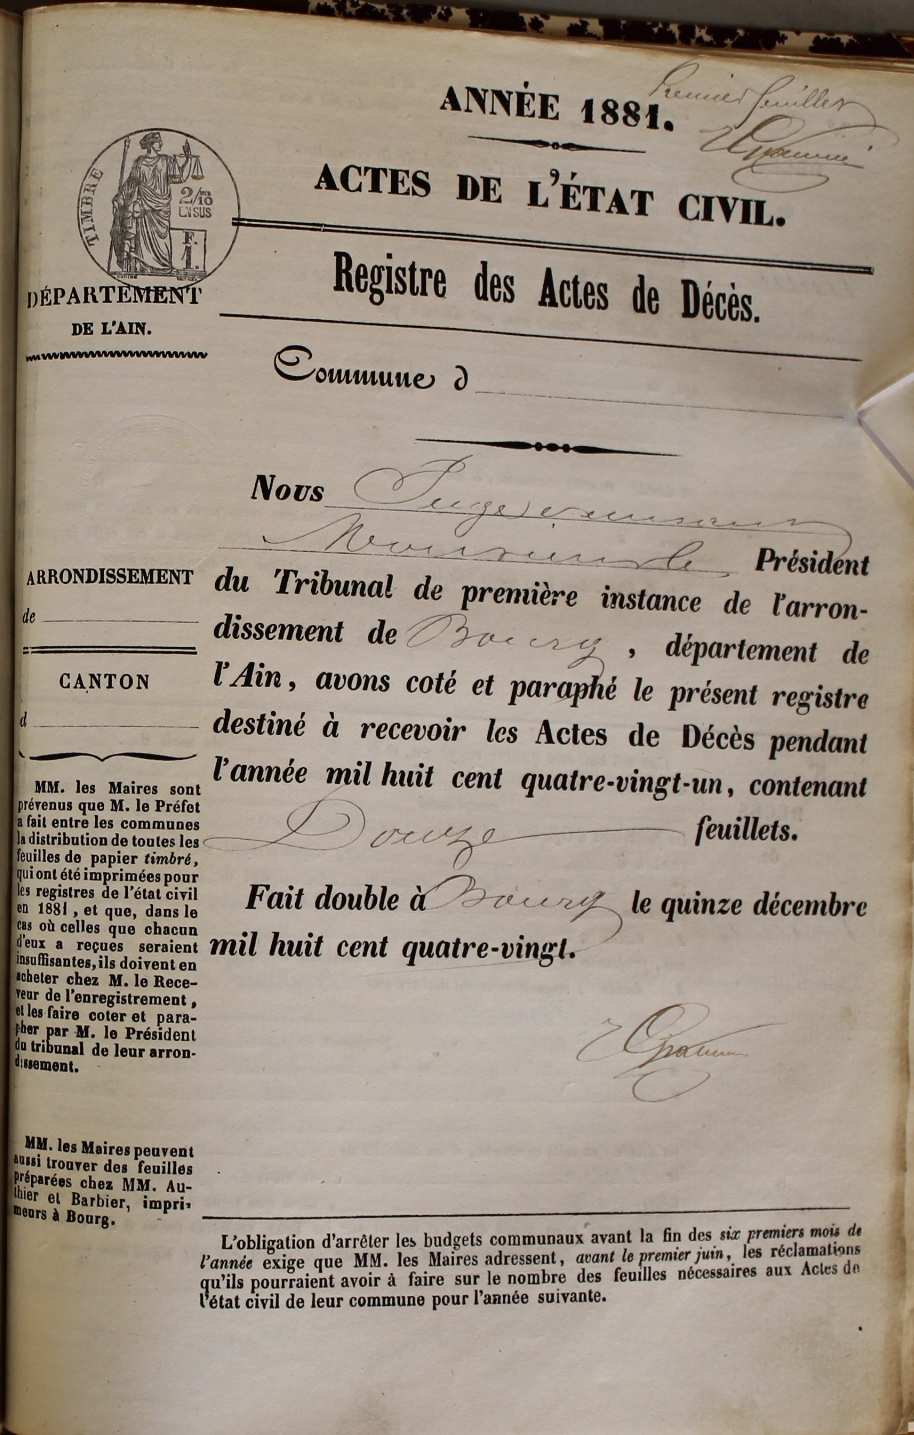 Premier feuillet
ANNÉE 1881.
ACTES DE L'ÉTAT CIVIL.
TIMBRE
2/10
EN SUS
F.
1
DÉPARTEMENT
DE L'AIN.
Registre des Actes de Décès.
Commune d
Nous Juge
Monsieur le Président
du Tribunal de première instance de l'arron-
dissement de Bourg, département de
l'Ain, avons coté et paraphé le présent registre
destiné à recevoir les Actes de Décès pendant
l'année mil huit cent quatre-vingt-un, contenant
Douze feuillets.
Fait double à Bourg le quinze décembre
mil huit cent quatre-vingt.
ARRONDISSEMENT
de
CANTON
d
MM. les Maires sont
prévenus que M. le Préfet
a fait entre les communes
la distribution de toutes les
feuilles de papier timbré,
qui ont été imprimées pour
les registres de l'état civil
en 1881, et que, dans le
cas où celles que chacun
d'eux a reçues seraient
insuffisantes, ils doivent en
acheter chez M. le Rece-
veur de l'enregistrement,
et les faire coter et para-
pher par M. le Président
du tribunal de leur arron-
dissement.
MM. les Maires peuvent
aussi trouver des feuilles
préparées chez MM. Au-
thier et Barbier, impri-
meurs à Bourg.
L'obligation d'arrêter les budgets communaux avant la fin des six premiers mois de
l'année exige que MM. les Maires adressent, avant le premier juin, les réclamations
qu'ils pourraient avoir à faire sur le nombre des feuilles nécessaires aux Actes de
l'état civil de leur commune pour l'année suivante.